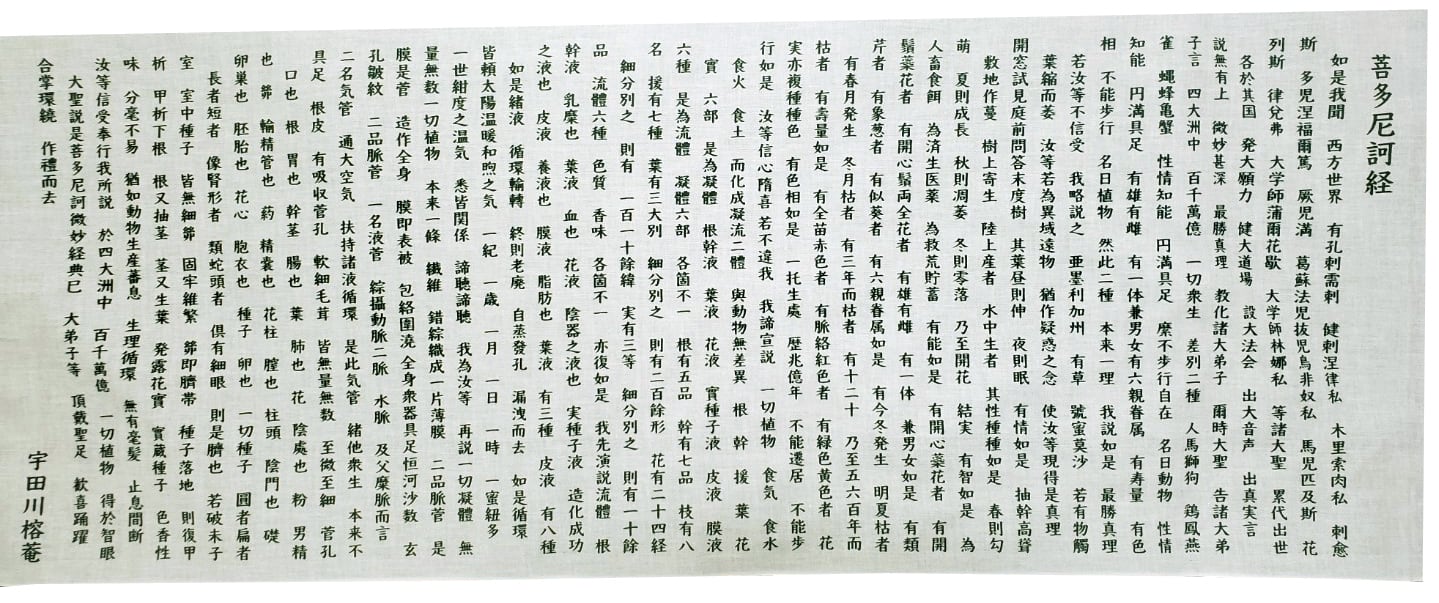 菩多尼訶経
如是我聞 西方世界 有孔剌需剌 健剌涅律私 木里索肉私 剌愈
斯 多児涅福爾篤 厥児満 葛蘇法児抜児烏非奴私 馬児匹及斯 花
列斯 律兌弗 大学師蒲爾花歇 大学師林娜私 等諸大聖 累代出世
各於其国 発大願力 健大道場 設大法会 出大音声 出真実言
説無有上 微妙甚深 最勝真理 教化諸大弟子 爾時大聖 告諸大弟
子言 四大洲中 百千萬億 一切衆生 差別二種 人馬獅狗 鶏鳳燕
雀 蠅蜂亀蟹 性情知能 円満具足 縻不歩行自在 名日動物 性情
知能 円満具足 有雄有雌 有一体兼男女有六親眷属 有寿量 有色
相 不能歩行 名日植物 然此二種 本来一理 我説如是 最勝真理
若汝等不信受 我略説之 亜墨利加州 有草 號蜜莫沙 若有物觸
葉縮而委 汝等若為異域遠物 猶作疑惑之念 使汝等現得是真理
開窓試見庭前問答末度樹 其葉昼則伸 夜則眠 有情如是 抽幹高聳
敷地作蔓 樹上寄生 陸上産者 水中生者 其性種種如是 春則勾
萌 夏則成長 秋則凋萎 冬則零落 乃至開花 結実 有智如是 為
人畜食餌 為済生医薬 為救荒貯蓄 有能如是 有開心蘂花者 有開
鬚蘂花者 有開心鬚両全花者 有雄有雌 有一体 兼男女如是 有類
芹者 有象葱者 有似葵者 有六親眷属如是 有今冬発生 明夏枯者
有春月発生 冬月枯者 有三年而枯者 有十二十 乃至五六百年而
枯者 有壽量如是 有全苗赤色者 有脈絡紅色者 有緑色黄色者 花
実亦複種種色 有色相如是 一托生處 歴兆億年 不能遷居 不能歩
行如是 汝等信心隋喜若不違我 我諦宣説 一切植物 食気 食水
食火 食土 而化成凝流二體 與動物無差異 根 幹 援 葉 花
實 六部 是為凝體 根幹液 葉液 花液 實種子液 皮液 膜液
六種 是為流體 凝體六部 各箇不一 根有五品 幹有七品 枝有八
名 援有七種 葉有三大別 細分別之 則有二百餘形 花有二十四経
細分別之 則有 一百一十餘緯 実有三等 細分別之 則有一十餘
品 流體六種 色質 香味 各箇不一 亦復如是 我先演説流體 根
幹液 乳糜也 葉液 血也 花液 陰器之液也 実種子液 造化成功
之液也 皮液 養液也 膜液 脂肪也 葉液 有三種 皮液 有八種
如是緒液 循環輸転 終則老廃 自蒸發孔 漏洩而去 如是循環
皆頼太陽温暖和煦之気 一紀 一歳 一月 一日 一時 一蜜紐多
一世紺度之温気 悉皆関係 諦聴諦聴 我為汝等 再説一切凝體 無
量無数一切植物 本来一條 纖維 錯綜織成一片薄膜 二品脈管 是
膜是菅 造作全身 膜即表被 包絡圍澆 全身衆器具足恒河沙数 玄
孔皺紋 二品脈管 一名液菅 綜攝動脈二脈 水脈 及父縻脈而言
二名気管 通大空気 扶持諸液循環 是此気管 緒他衆生 本来不
具足 根皮 有吸収管孔 軟細毛茸 皆無量無数 至微至細 菅孔
口也 根 胃也 幹茎 腸也 葉 肺也 花 陰處也 粉 男精
也 𦬇 輸精管也 葯 精嚢也 花柱 膣也 柱頭 陰門也 礎
卵巣也 胚胎也 花心 胞衣也 種子 卵也 一切種子 圓者扁者
長者短者 像腎形者 類蛇頭者 倶有細眼 則是臍也 若破未子
室 室中種子 皆無細𦬇 固牢維繁 𦬇即臍帯 種子落地 則復甲
析 甲析下根 根又抽茎 茎又生葉 発露花實 實蔵種子 色香性
味 分毫不易 猶如動物生産蕃息 生理循環 無有毫髪 止息間断
汝等信受奉行我所説 於四大洲中 百千萬億 一切植物 得於智眼
大聖説是菩多尼訶微妙経典已 大弟子等 頂戴聖足 歓喜踊躍
合掌環繞 作禮而去
宇田川榕菴